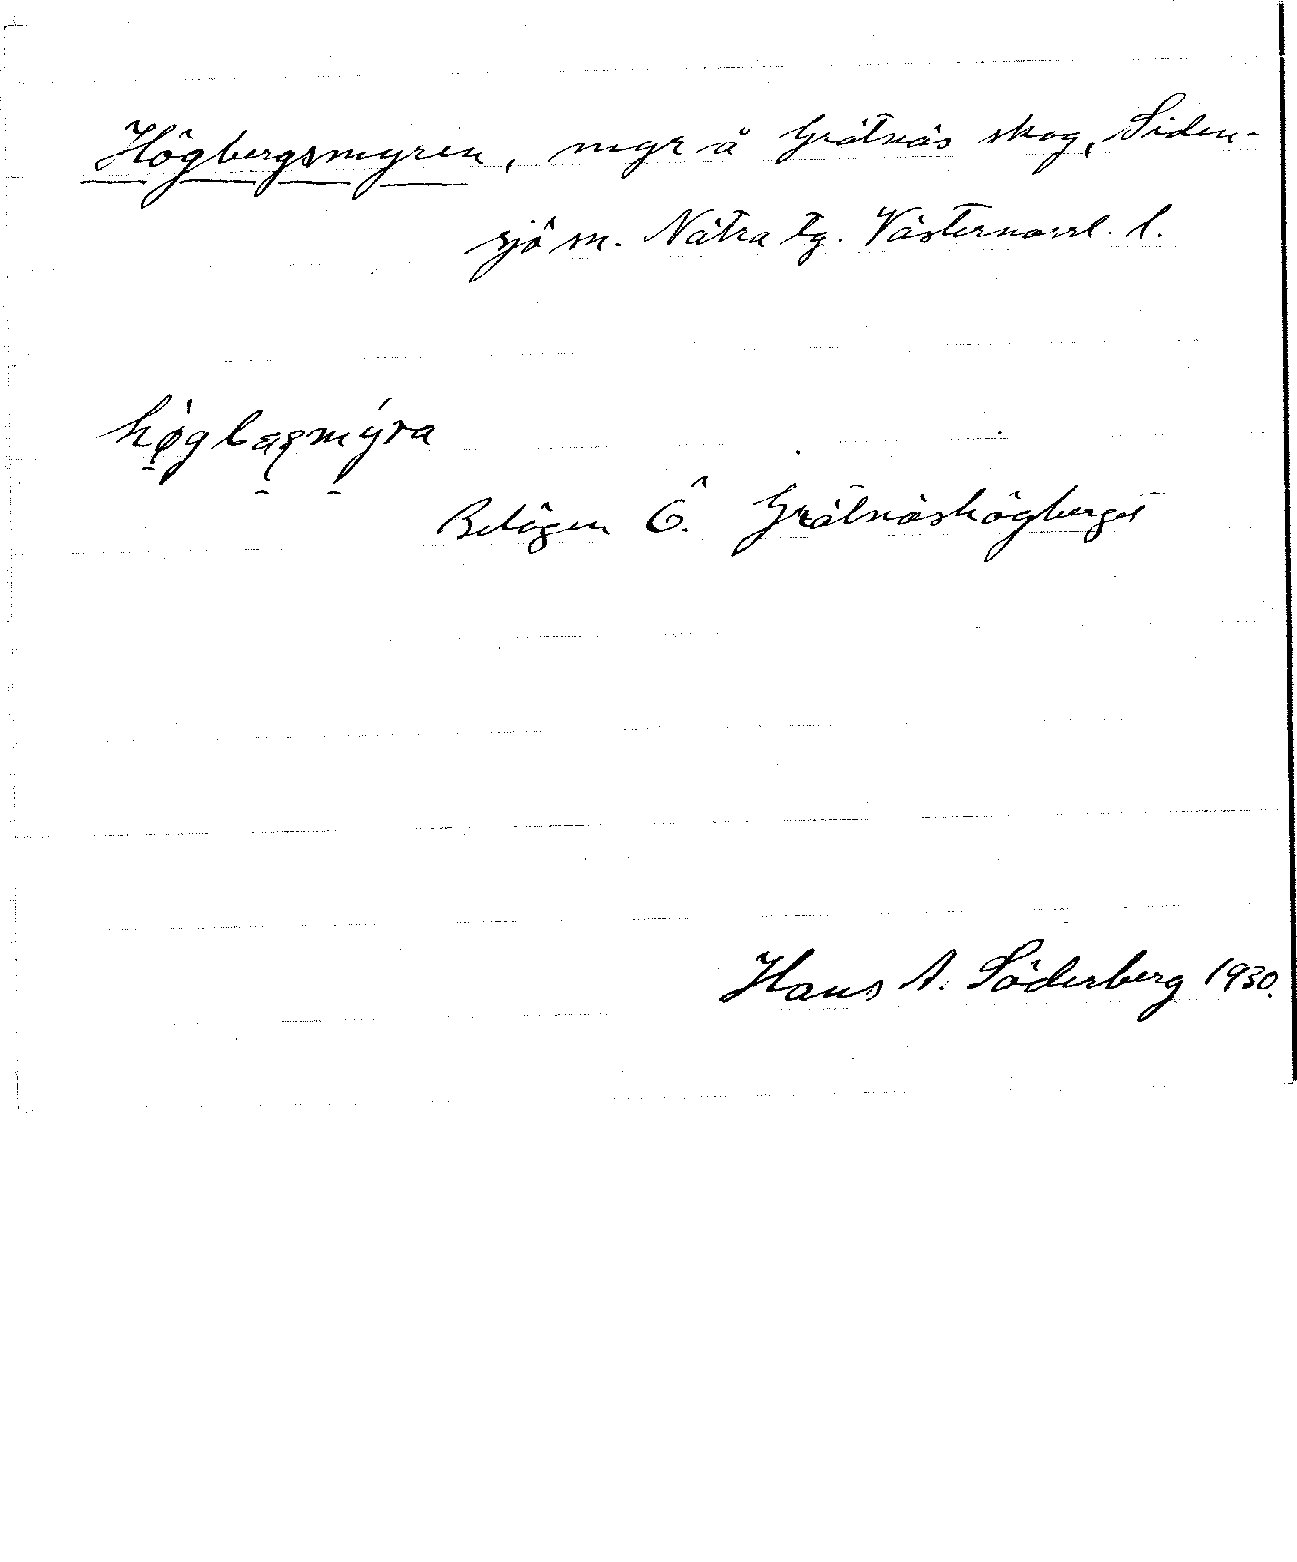 Högbergsmyren, myr å Grötnäs skog, Siden-
sjö sn. Nätra tg. Västernorrl. l.
Belägen Ö. Grötnäshögberget
Hans A. Söderberg 1930.